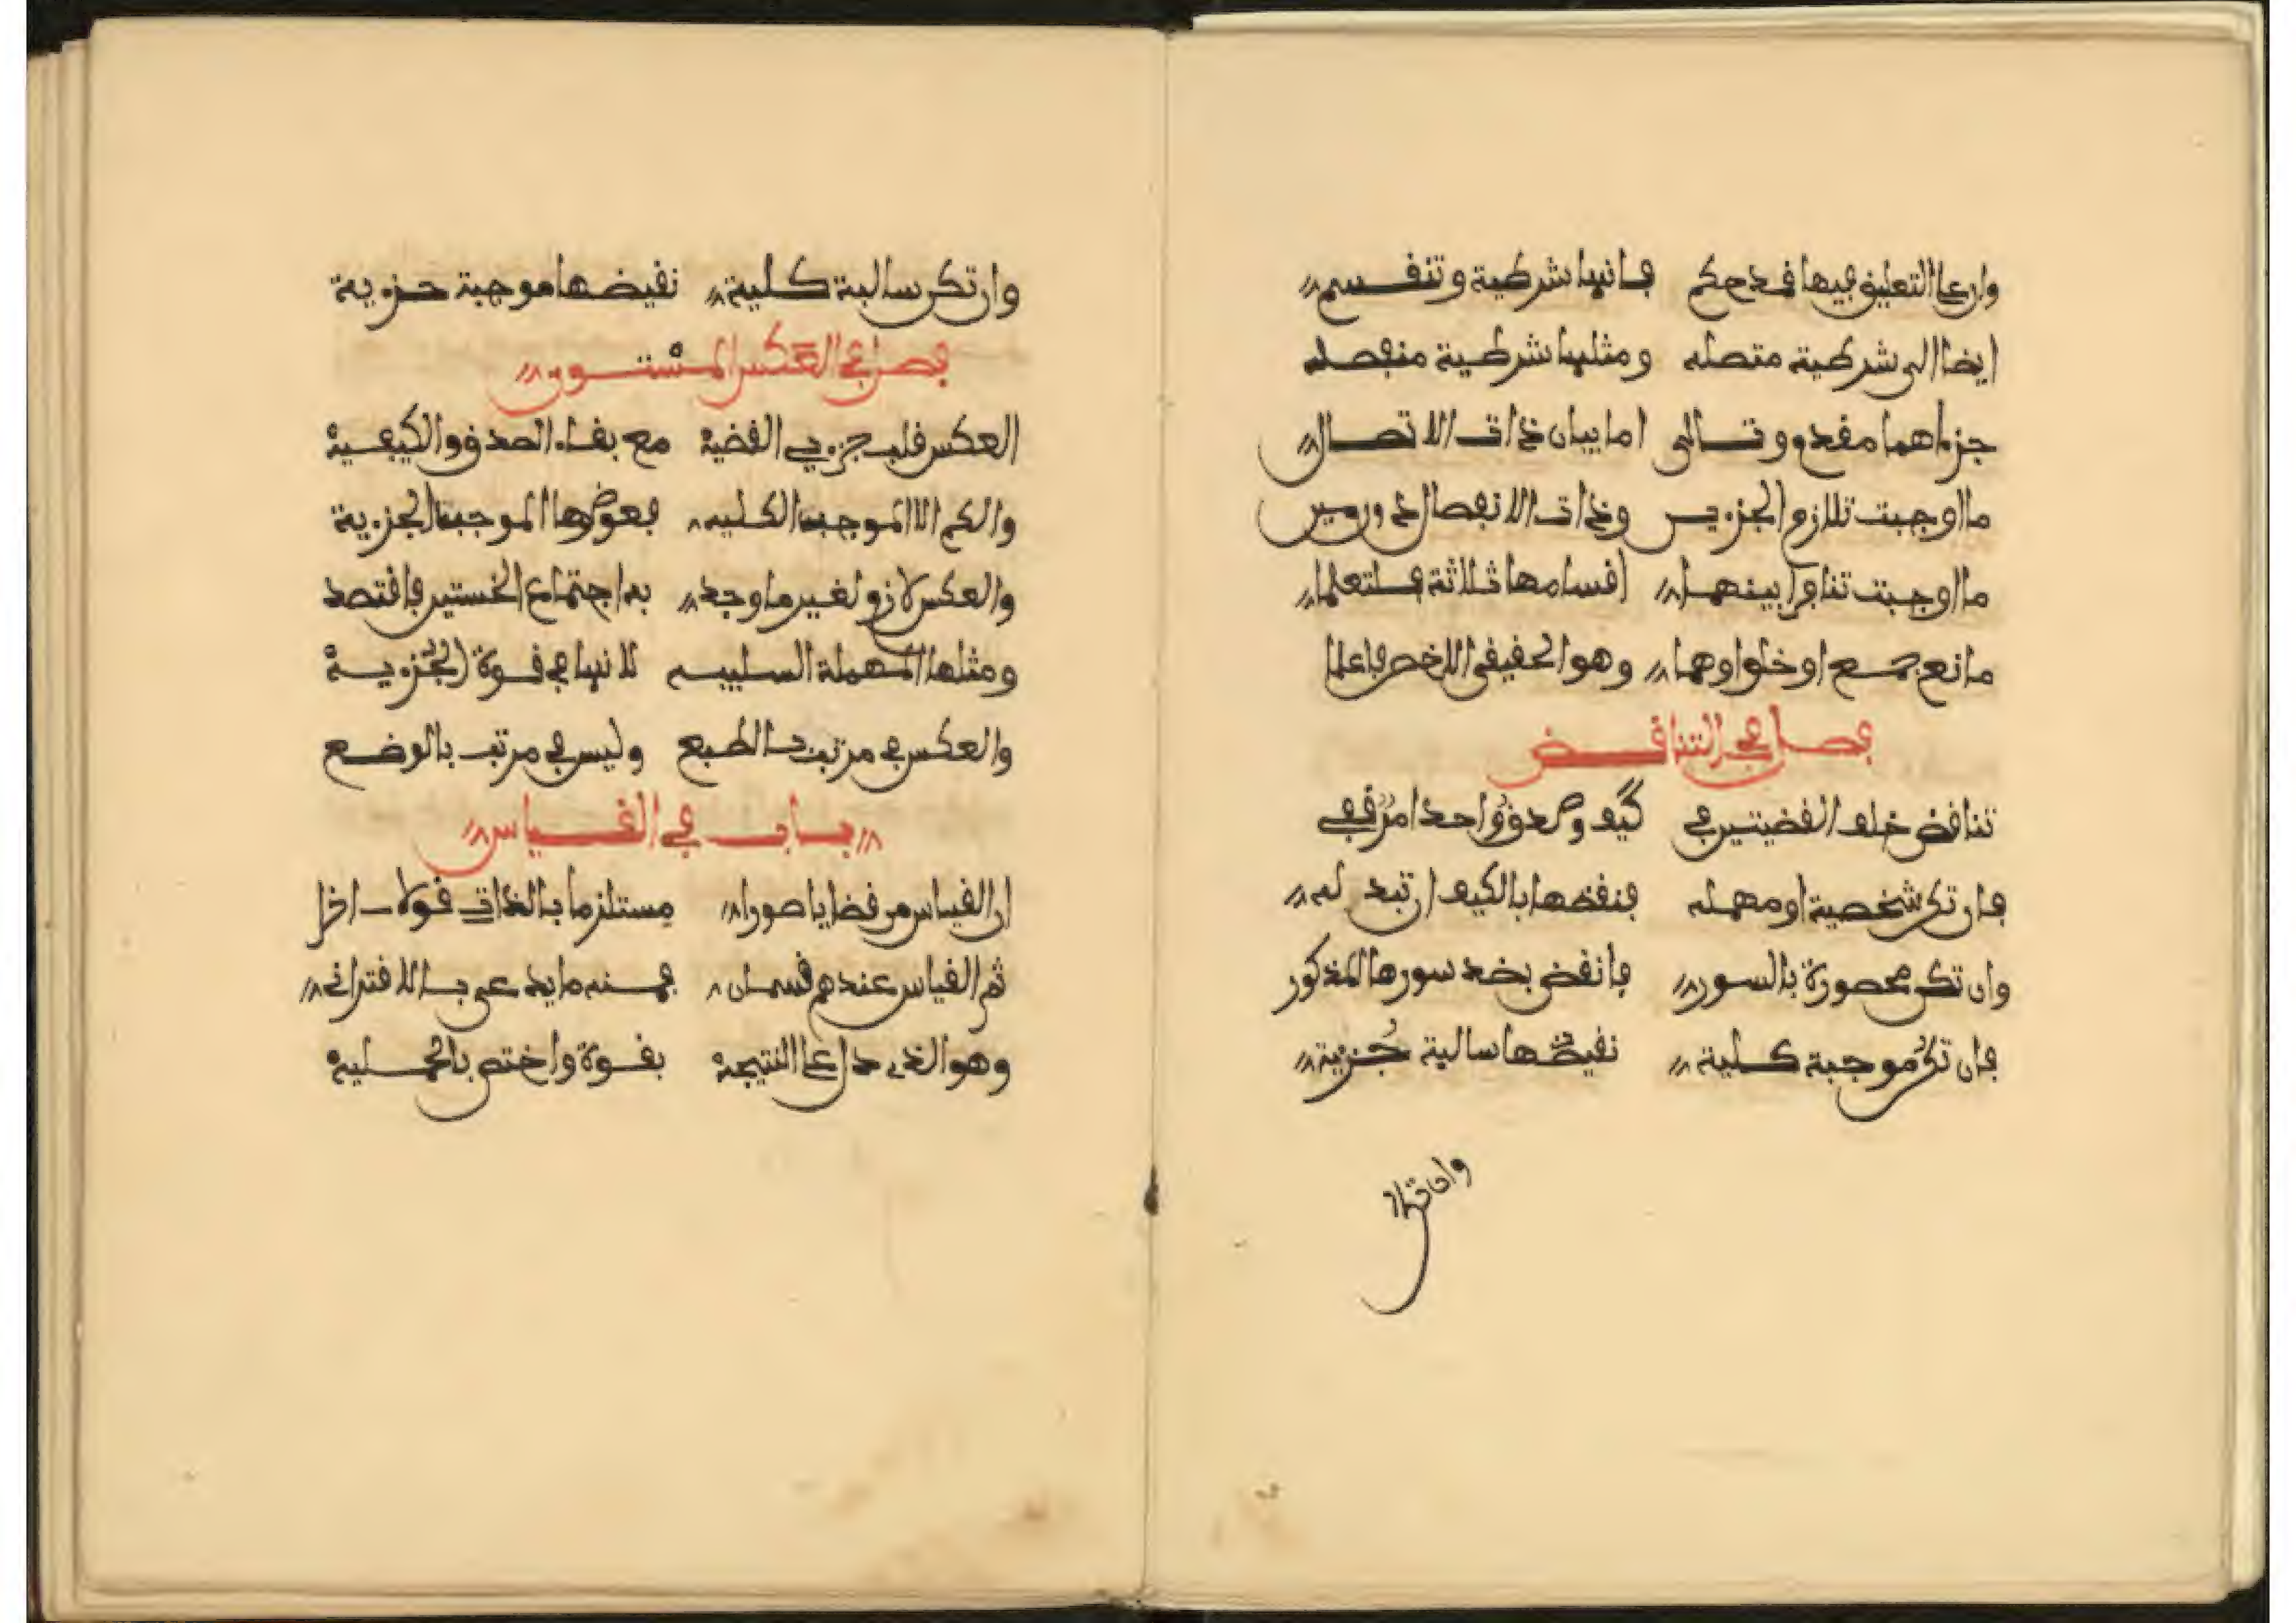 وان على التعليق فيها قد حكم فانها شرطية وتنقسم
ايضا الى شرطية متصله ومثلها شرطية منفصله
جزءاهما مقدم وتالى اما بيان ذات الاتصال
ما اوجبت تلازم الجزءين وذات الانفصال دون مين
ما اوجبت تنافرا بينهما اقسامها ثلاثة فلتعلما
مانع جمع او خلو او هما وهو الحقيقى الاخص فاعلما
فصل فى التناقض
تناقض خلف القضيتين فى كيف وصدق واحد امر قفى
فان تكن شخصية او مهمله فنقضها بالكيف ان تبد له
وان تكن محصورة بالسور فانقض بضد سورها المذكور
فان تكن موجبة كلية نقيضها سالبة جزية
وان تكن
وان تكن سالبة كلية نقيضها موجبة جزءية
فصل فى العكس المستوى
العكس قلب جزءي القضية مع بقاء الصدق والكيفية
والكم الا الموجبة الكليه فعوضها الموجبة الجزءية
والعكس لازم لغير ما وجد به اجتماع الخستين فاقتصد
ومثلها المهملة السلبيه لانها فى قوة الجزءية
والعكس فى مرتب بالطبع وليس فى مرتب بالوضع
باب فى القياس
ان القياس من قضايا صورا مستلزما بالذات قولا اخرا
ثم القياس عندهم قسمان فمنه ما يدعى بالاقترانى
وهو الذى دل على النتيجة بقوة واختص بالحملية